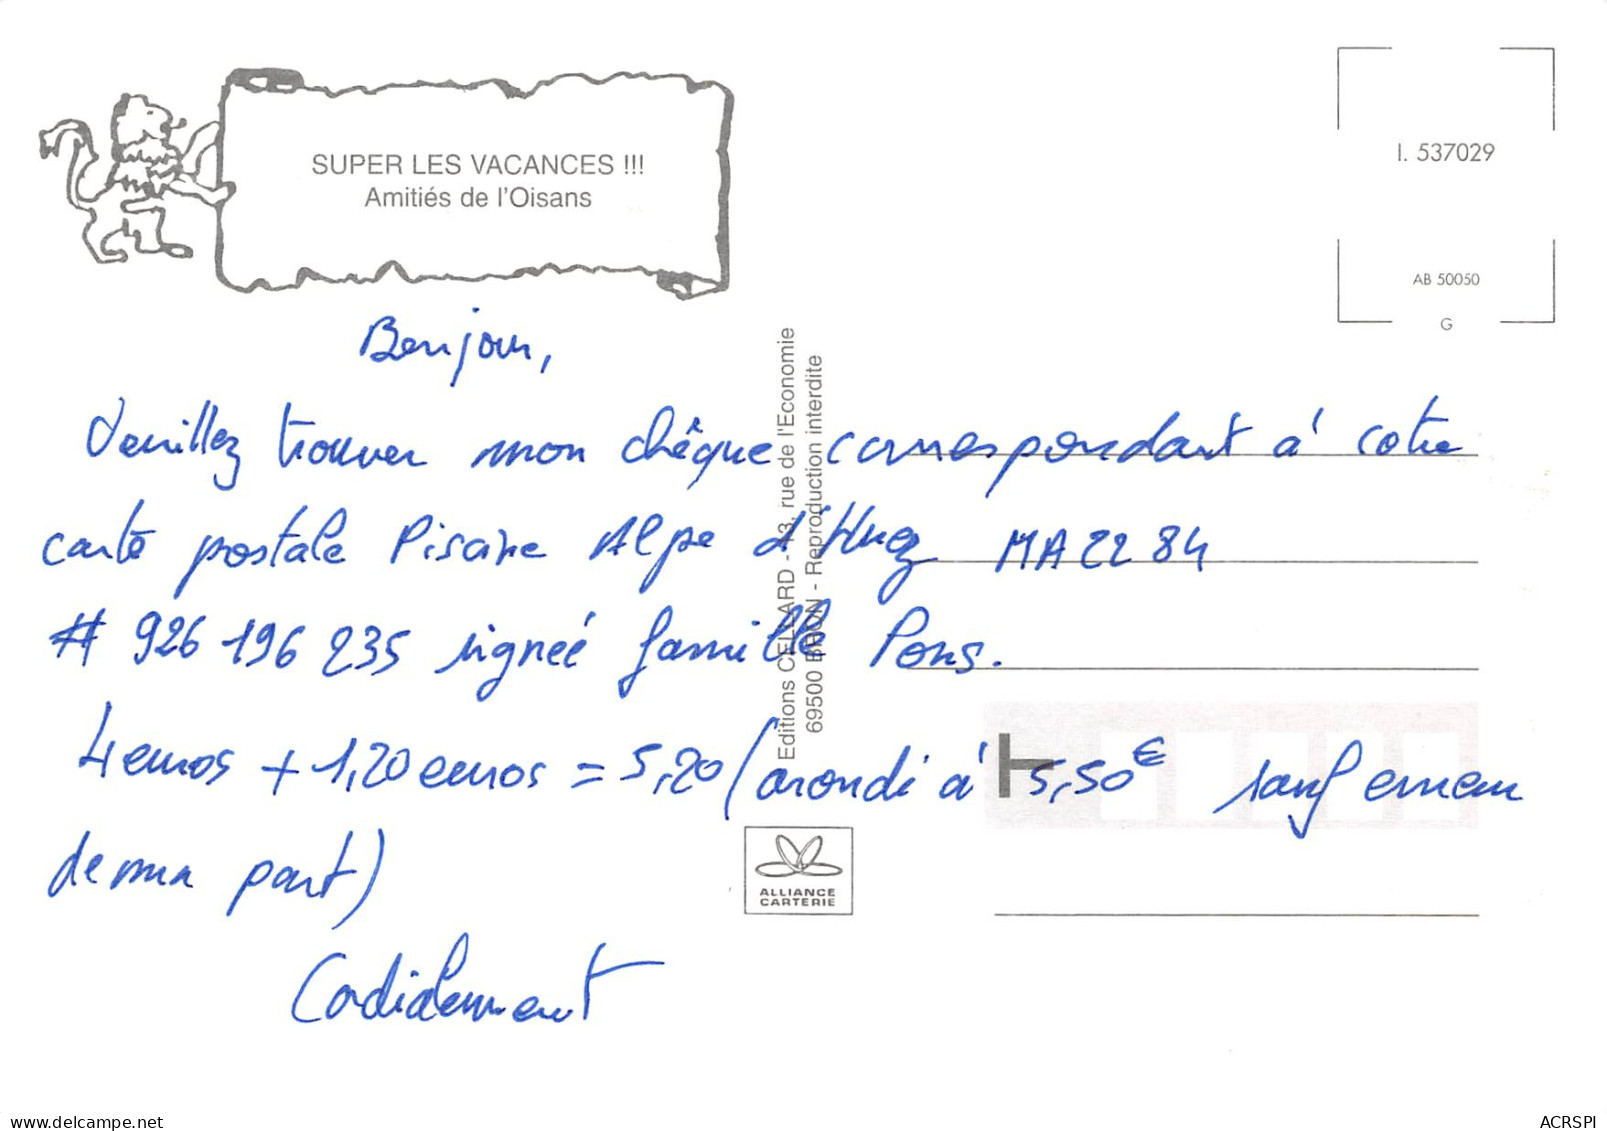 SUPER LES VACANCES !!!
Amitiés de l'Oisans
I. 537029
AB 50050
G
Bonjour,
Veuillez trouver mon chèque correspondant à cotre
carte postale Piscine Alpe d'Huez MA2284
# 926 196 235 signée famille Pons.
4 euros + 1,20 euros = 5,20 (arondi à 5,50€ sauf erreur
de ma part)
Cordialement
Editions CELLARD - 43, rue de l'Economie
69500 BRON - Reproduction interdite
ALLIANCE
CARTERIE
delcampe.net
ACRSPI